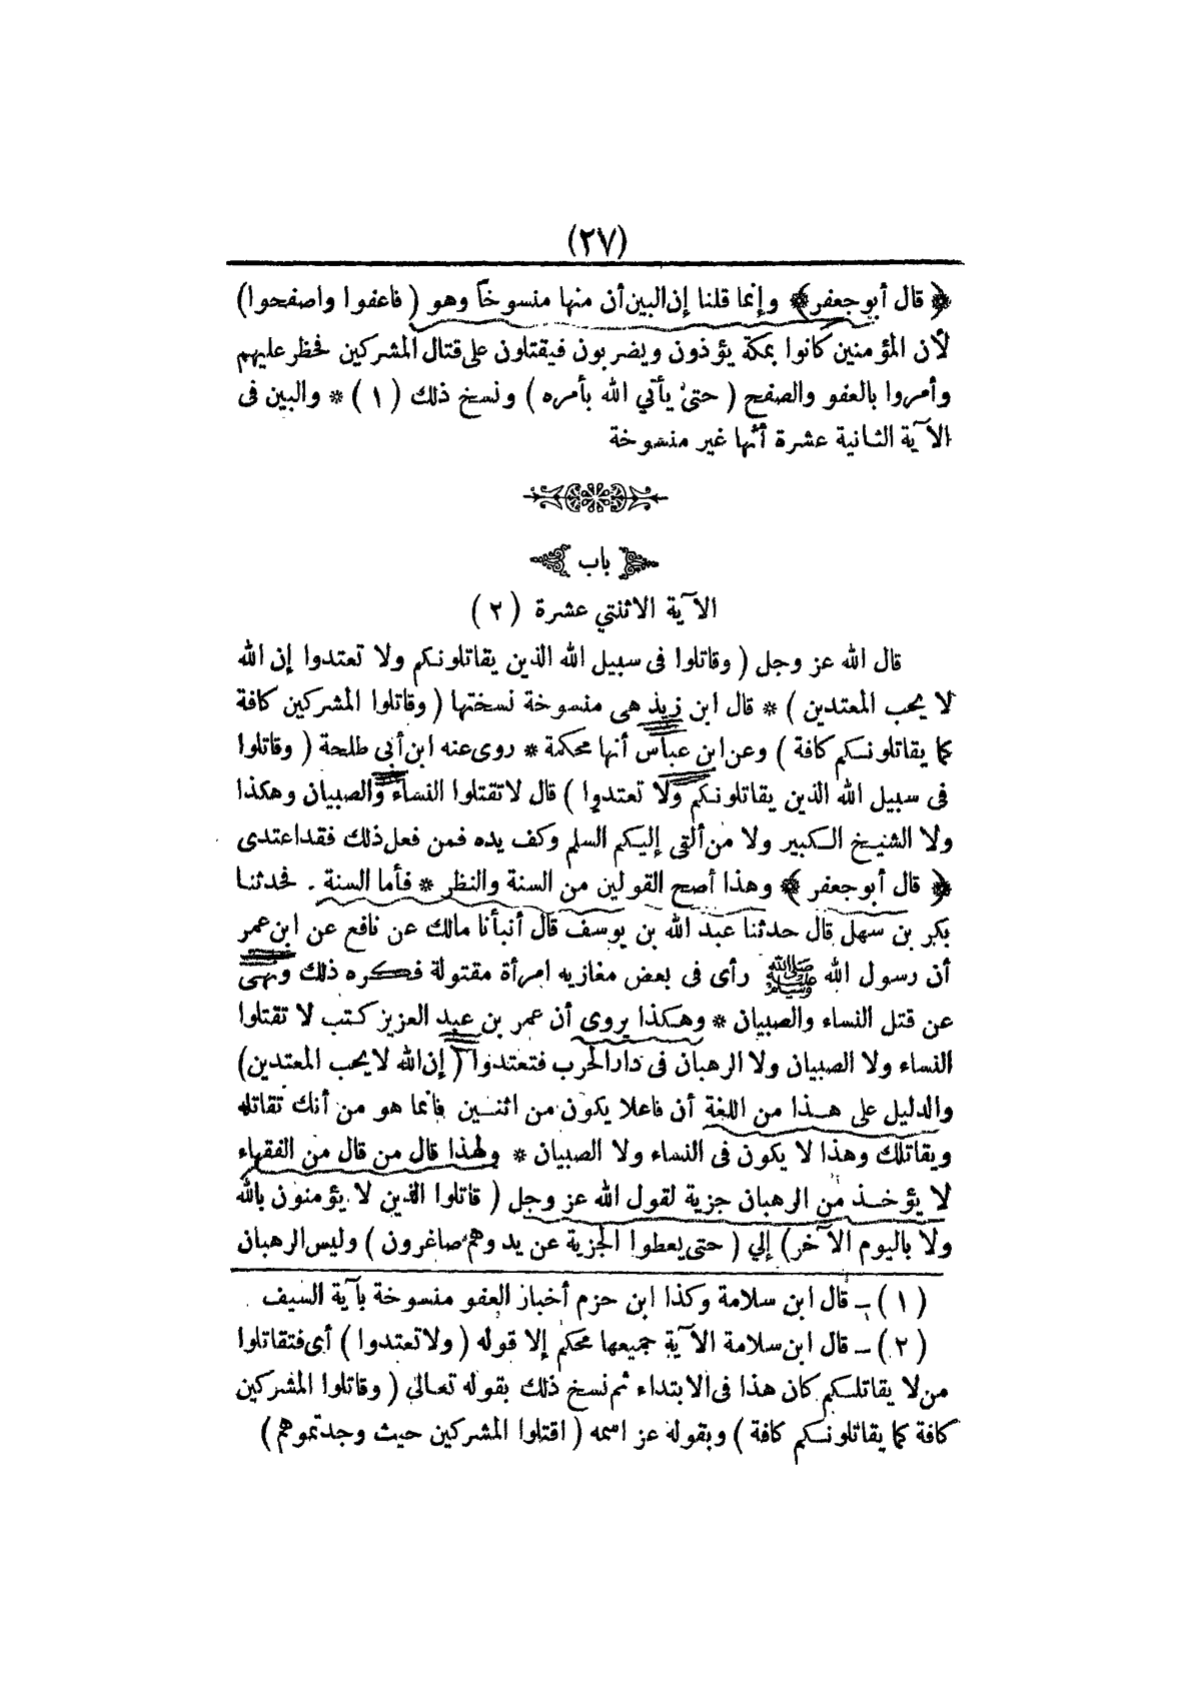 (٢٧)
﴿ قال أبو جعفر ﴾ وإنما قلنا إن البين أن منها منسوخاً وهو ( فاعفوا واصفحوا)
لأن المؤمنين كانوا بمكة يؤذون ويضربون فيقتلون على قتال المشركين فحظر عليهم
وأمروا بالعفو والصفح ( حتى يأتي الله بأمره ) ونسخ ذلك ( ١ ) * والبين فى
الآية الثانية عشرة أنها غير منسوخة
باب
الآية الاثنتي عشرة ( ٢ )
قال الله عز وجل ( وقاتلوا فى سبيل الله الذين يقاتلونكم ولا تعتدوا إن الله
لا يحب المعتدين ) * قال ابن زيد هى منسوخة نسختها ( وقاتلوا المشركين كافة
كما يقاتلونكم كافة ) وعن ابن عباس أنها محكمة * روى عنه ابن أبى طلحة ( وقاتلوا
فى سبيل الله الذين يقاتلونكم ولا تعتدوا ) قال لا تقتلوا النساء والصبيان وهكذا
ولا الشيخ الكبير ولا من ألقى إليكم السلم وكف يده فمن فعل ذلك فقد اعتدى
﴿ قال أبو جعفر ﴾ وهذا أصح القولين من السنة والنظر * فأما السنة . فحدثنا
بكر بن سهل قال حدثنا عبد الله بن يوسف قال أنبأنا مالك عن نافع عن ابن عمر
أن رسول الله ﷺ رأى فى بعض مغازيه امرأة مقتولة فكره ذلك ونهى
عن قتل النساء والصبيان * وهكذا يروى أن عمر بن عبد العزيز كتب لا تقتلوا
النساء ولا الصبيان ولا الرهبان فى دار الحرب فتعتدوا ( إن الله لا يحب المعتدين)
والدليل على هذا من اللغة أن فاعلا يكون من اثنين فانما هو من أنك تقاتله
ويقاتلك وهذا لا يكون فى النساء ولا الصبيان * ولهذا قال من قال من الفقهاء
لا يؤخذ من الرهبان جزية لقول الله عز وجل ( قاتلوا الذين لا يؤمنون بالله
ولا باليوم الآخر) إلي ( حتى يعطوا الجزية عن يد وهم صاغرون ) وليس الرهبان
( ١ ) ــ قال ابن سلامة وكذا ابن حزم أخبار العفو منسوخة بآية السيف .
( ٢ ) ــ قال ابن سلامة الآية جميعها محكم إلا قوله ( ولا تعتدوا ) أى فتقاتلوا
من لا يقاتلكم كان هذا فى الابتداء ثم نسخ ذلك بقوله تعالى ( وقاتلوا المشركين
كافة كما يقاتلونكم كافة ) وبقوله عز اسمه ( اقتلوا المشركين حيث وجدتموهم )